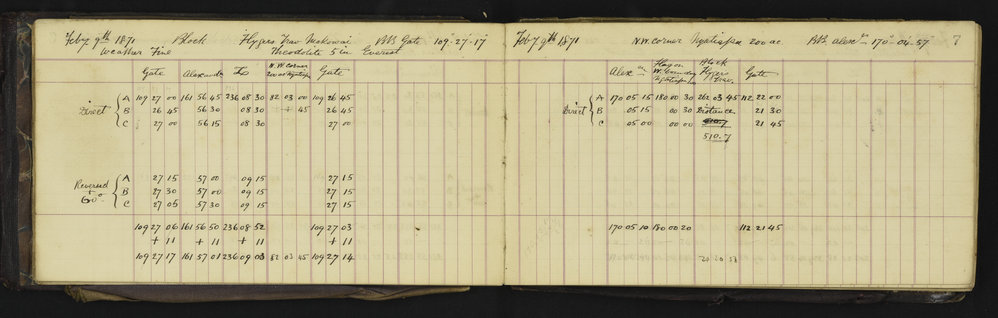 Feby 9th 1871 Block Flygers Trav Makowai B.S. Gate 109° 27' 17"
Weather Fine Theodolite 5 in Everest
Gate Alexandr N.W. Corner 200 ac Ngatiapa Gate
Direct A 109 27 00 161 56 45 236 08 30 82 03 00 109 26 45
B 26 45 56 30 08 30 + 45 26 45
C 27 00 56 15 08 30 27 00
Reversed + 60° A 27 15 57 00 09 15 27 15
B 27 30 57 00 09 15 27 15
C 27 05 57 30 09 15 27 15
109 27 06 161 56 50 236 08 52 109 27 03
+ 11 + 11 + 11 + 11
109 27 17 161 57 01 236 09 03 82 03 45 109 27 14
Feby 9th 1871 N.W. Corner Ngatiapa 200 ac B.S. Alexr 170° 04' 57" 7
Alexr Flag on W. Boundry Ngatiapa Block Flygers Trav. Gate
Direct A 170 05 15 180 00 30 262 03 45 112 22 00
B 05 15 00 30 Distance 21 30
C 05 00 00 00 510.7 21 45
510.7
170 05 10 180 00 20 112 21 45